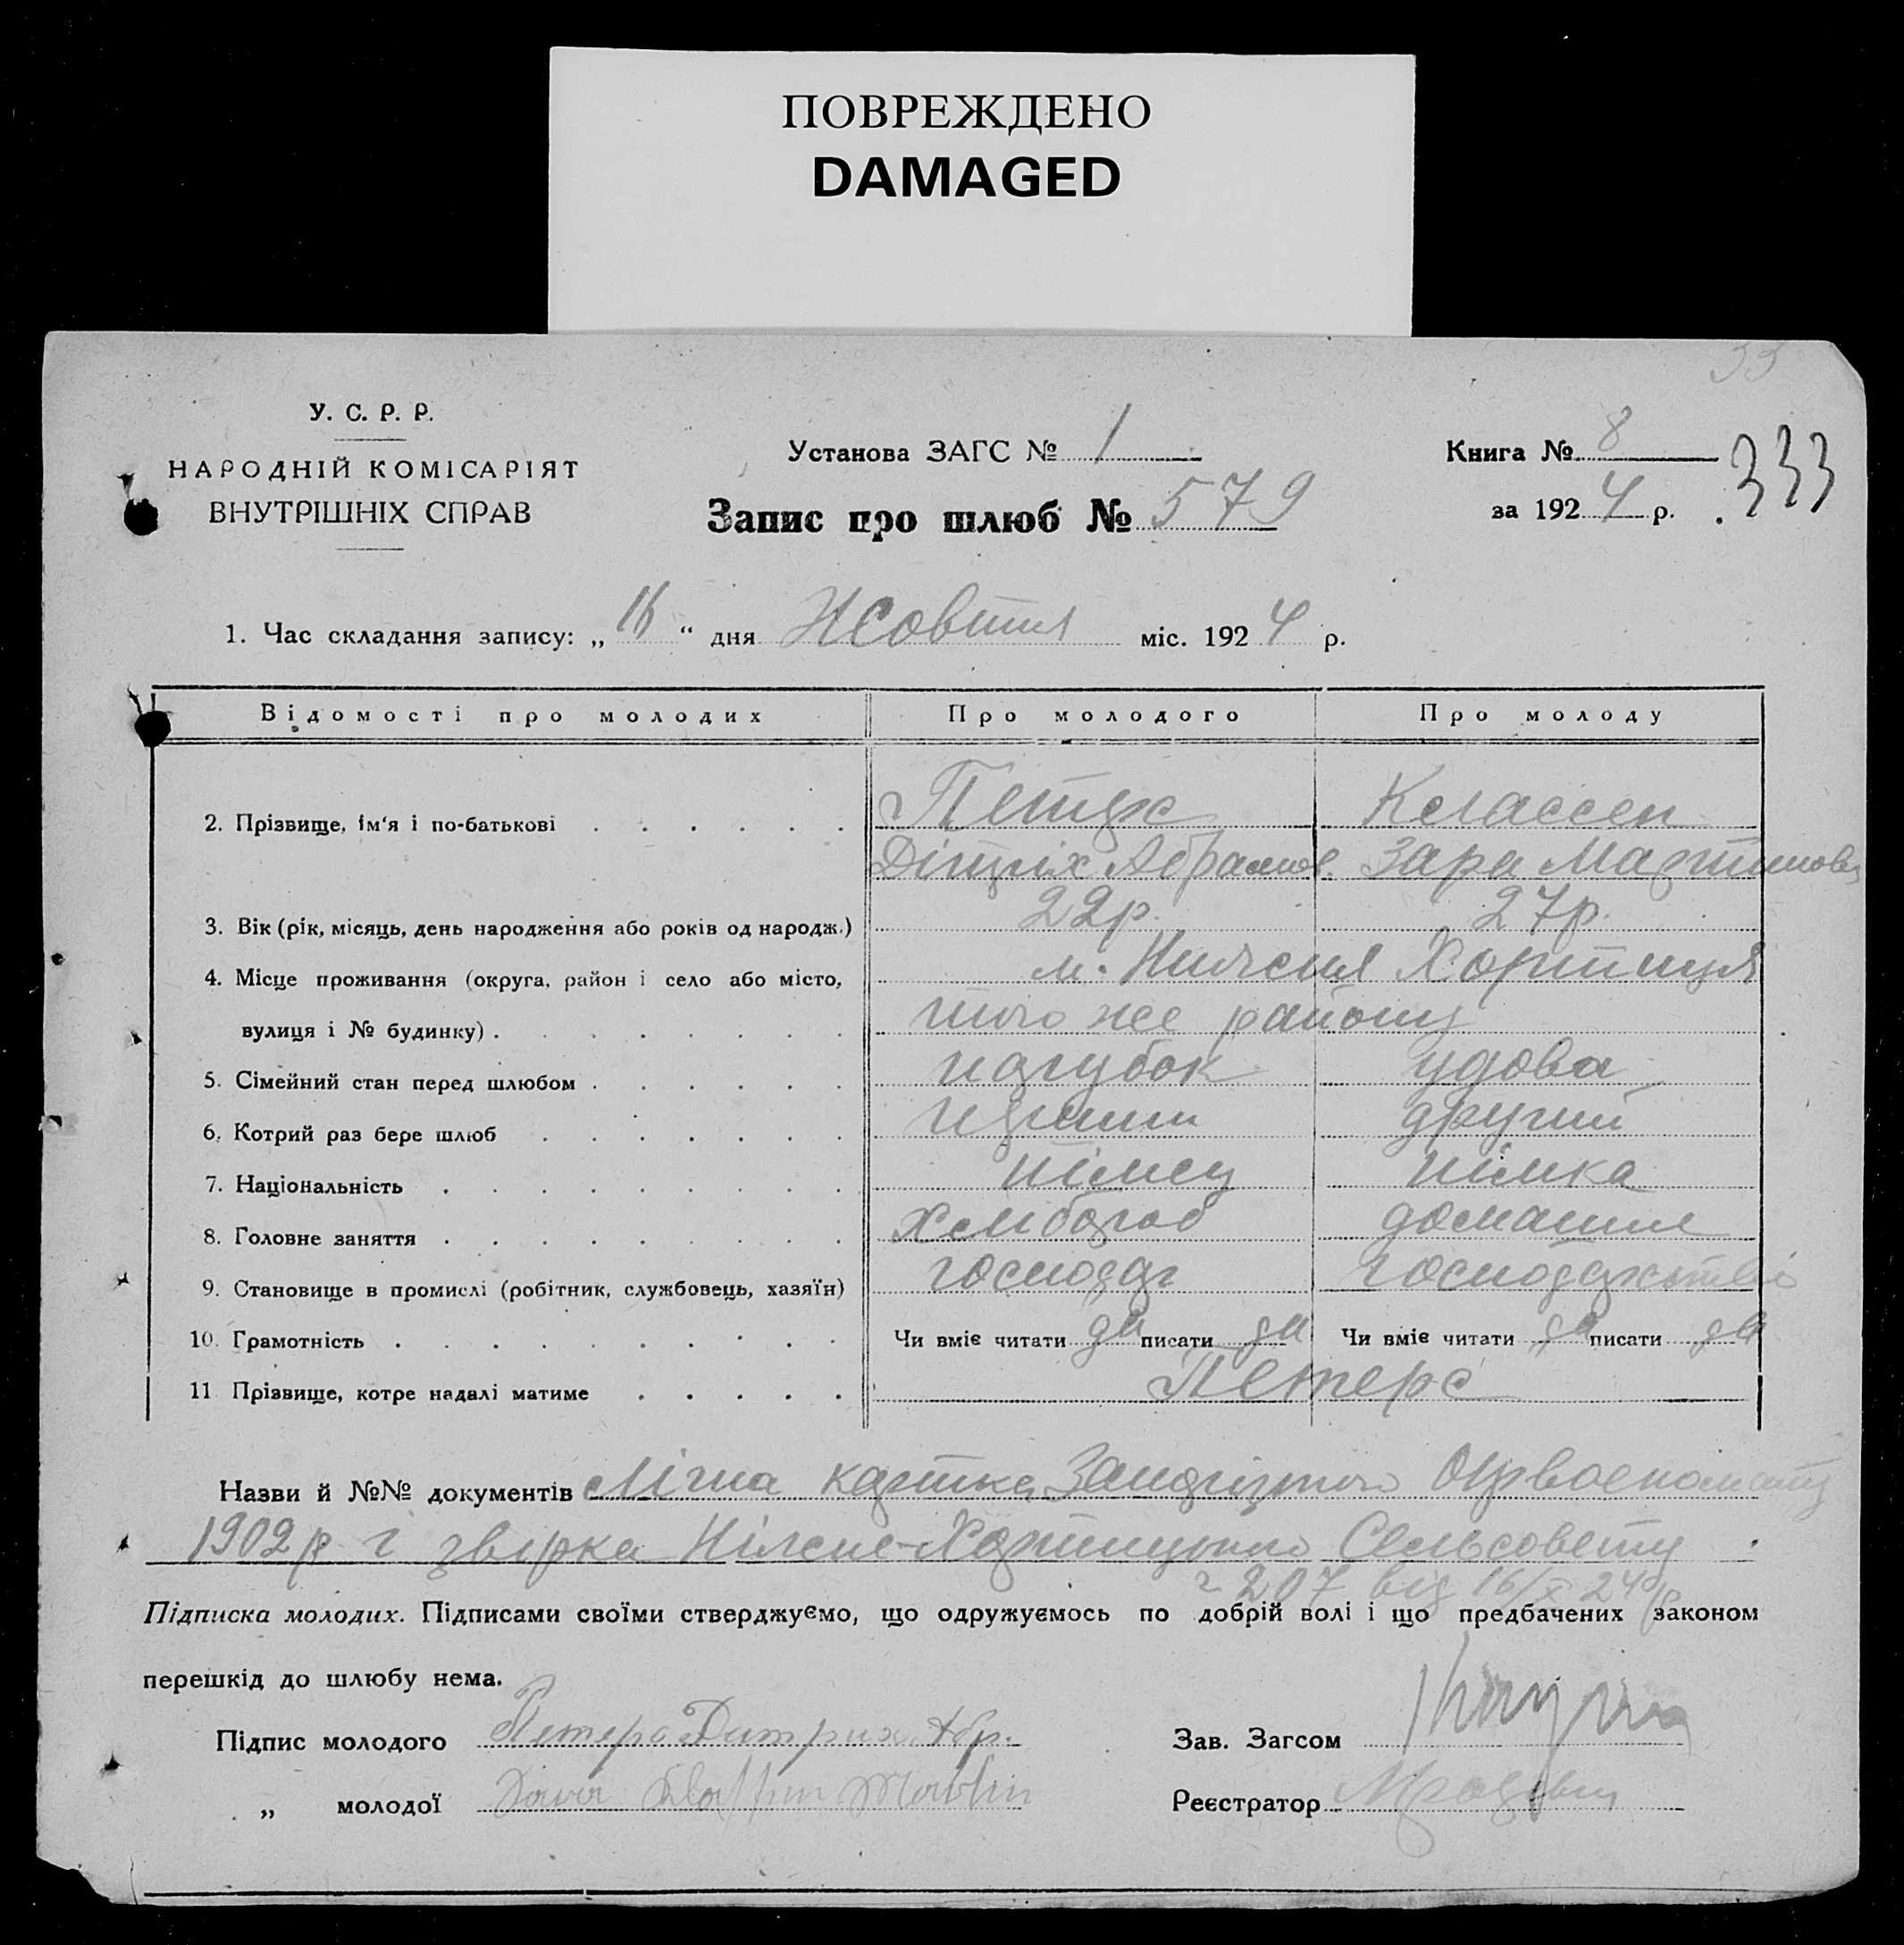 ПОВРЕЖДЕНО
DAMAGED
33
У. С. Р. Р.
НАРОДНІЙ КОМІСАРІЯТ
ВНУТРІШНІХ СПРАВ
Установа ЗАГС № 1
Запис про шлюб № 579
Книга № 8
за 1924 р.
333
1. Час складання запису: „16“ дня Жовтня міс. 1924 р.
Відомості про молодих Про молодого Про молоду
2. Прізвище, ім‘я і по-батькові Петерс Классен
Дітріх Абрамов. Зара Мартинова
3. Вік (рік, місяць, день народження або років од народж.) 22р. 27р.
4. Місце проживання (округа, район і село або місто, м. Нижня Хортиця
вулиця і № будинку) того же району
5. Сімейний стан перед шлюбом парубок удова
6. Котрий раз бере шлюб перший другий
7. Національність німец німка
8. Головне заняття хлібороб домашнє
9. Становище в промислі (робітник, службовець, хазяїн) господар господарство
10. Грамотність Чи вміє читати да писати да Чи вміє читати да писати да
11 Прізвище, котре надалі матиме Петерс
Назви й №№ документів Лічна картка Запорізького Окрвоенкомату
1902 р. і звірка Ніжне-Хортицького Сельсовету
207 від 16/X 24 р.
Підписка молодих. Підписами своїми стверджуємо, що одружуємось по добрій волі і що предбачених законом
перешкід до шлюбу нема.
Підпис молодого Петерс Дитрих Абр.
Зав. Загсом
„ молодої Klassen Martin
Реєстратор